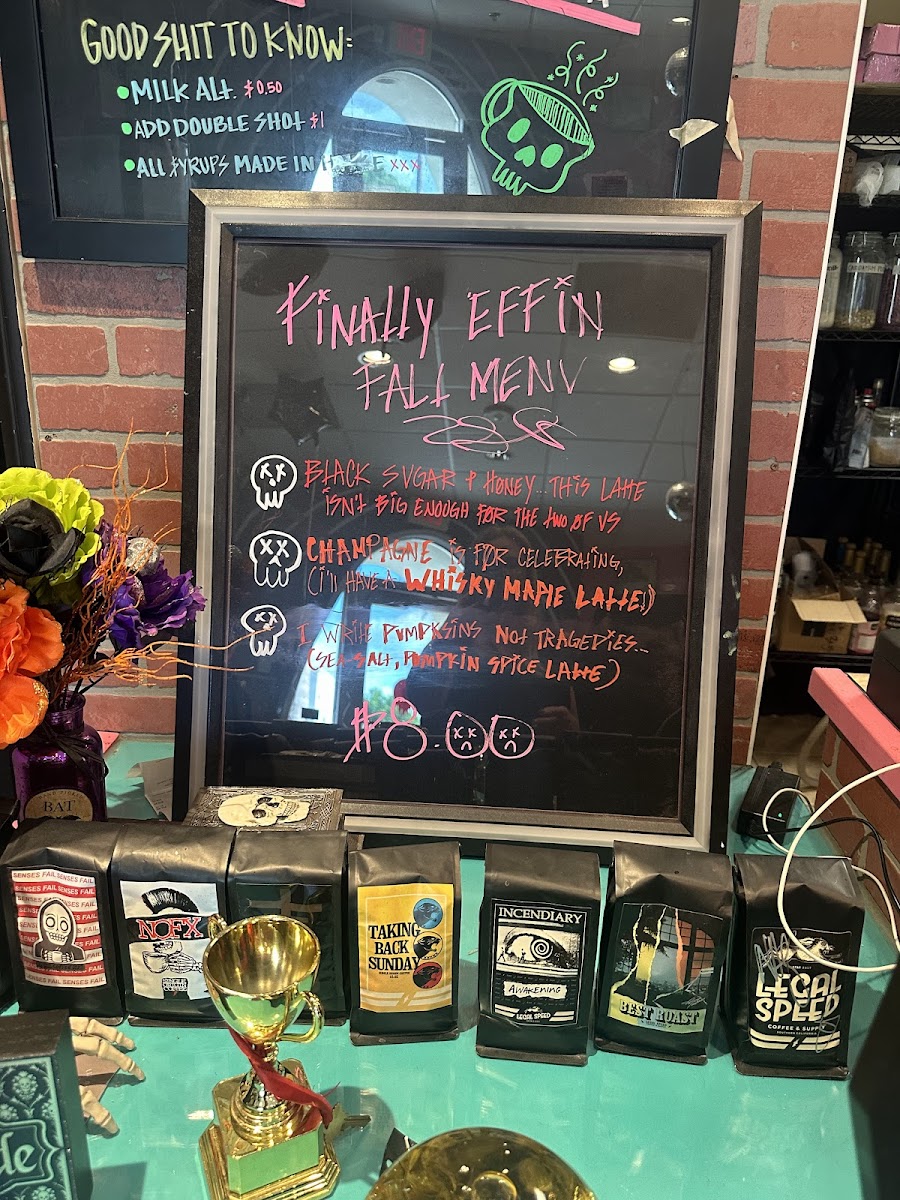 GOOD SHIT TO KNOW:
• MILK ALt. $0.50
• ADD DOUBLE SHOt $1
• ALL SYRUPS MADE IN XXX
FiNAlly EFFiN
FALL MENU
BLACK SUGAR & HONEY... THIS LAttE
iSN't BiG ENOUGH FOR THE two OF US
CHAMPAGNE iS FOR CELEBRAtiNG,
(I'll HAVE A WHiSKY MAPlE LAttE!)
I WRitE PUMPKSINS NOt TRAGEDiES...
(SEA-SALt, PUMPKIN SPiCE LAttE)
$8.00
BAT
SENSES FAIL SENSES FAIL
SENSES FAIL SENSES FAIL
NOFX
TAKING
BACK
SUNDAY
INCENDIARY
AWAKENING
LEGAL SPEED
BEST ROAST
LEGAL
SPEED
COFFEE & SUPPLY
SOUTHERN CALIFORNIA
de